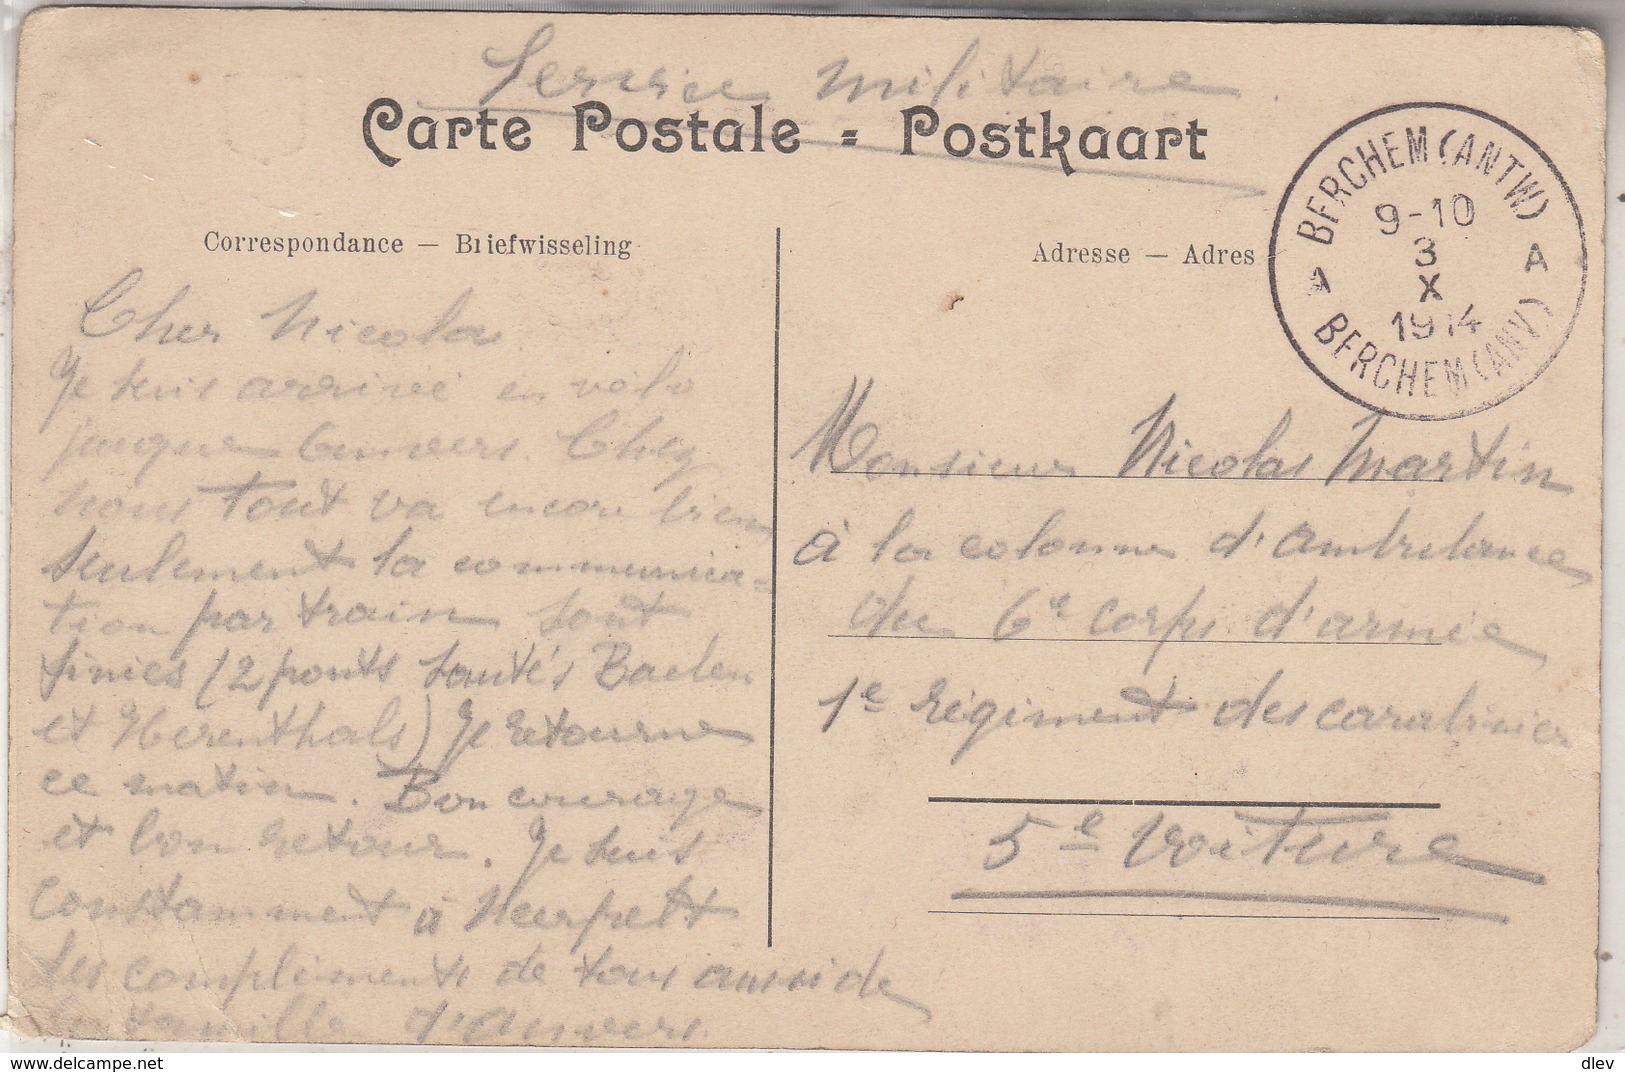 Service militaire
Carte Postale = Postkaart
Correspondance — Briefwisseling
Adresse — Adres
BERCHEM (ANTW)
9-10
3
X
1914
A A
BERCHEM (ANV.)
Cher Nicola
Je suis arrivé en vélo
jusque Anvers. Chez
nous tout va encore bien
seulement la communica=
tion par train sont
finies (2 ponts sautés Baelen
et Herenthals) Je retourne
ce matin. Bon courage
et bon retour. Je suis
constamment à Neerpelt
Les compliments de tous aussi de
la famille d'Anvers.
Monsieur Nicolas Martin
à la colonne d'ambulance
du 6e corps d'armée
1e régiment des carabinier
5e Voiture
delcampe.net
dlev